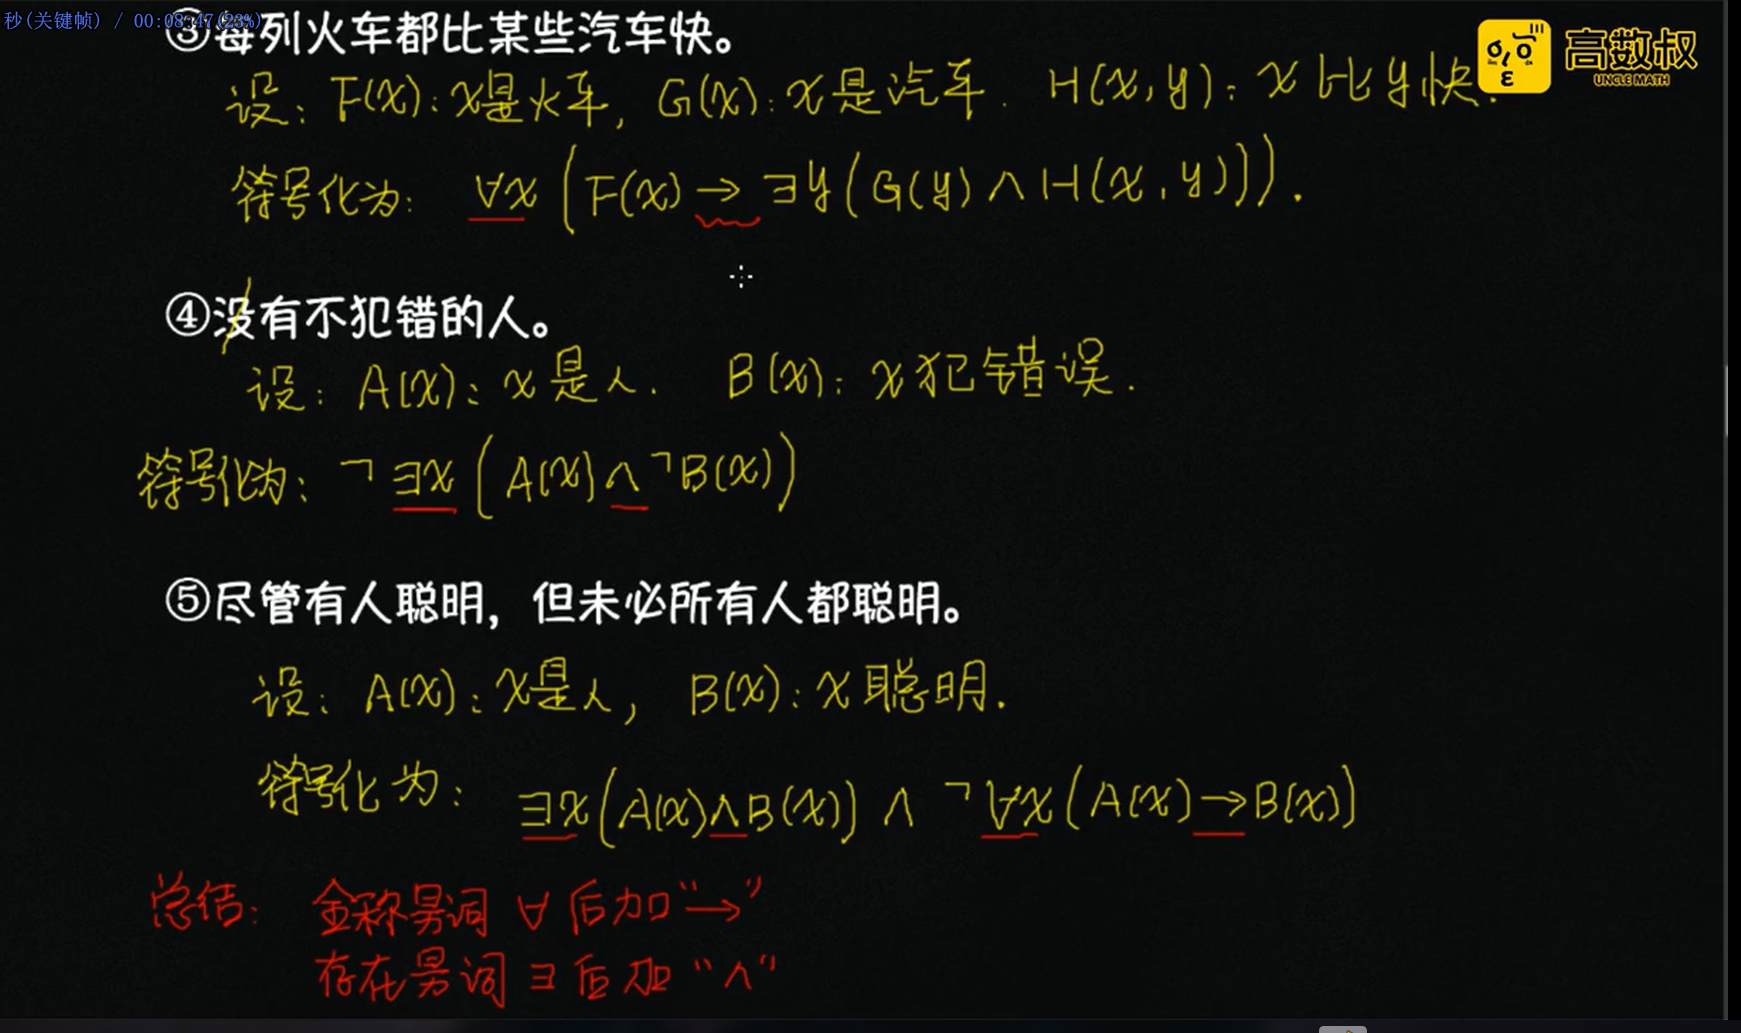 秒(关键帧) / 00:08:47(23%)
③每列火车都比某些汽车快。
高数叔
UNCLE MATH
设: F(x): x是火车, G(x): x是汽车. H(x,y): x比y快.
符号化为: ∀x(F(x)→∃y(G(y)∧H(x,y))).
④没有不犯错的人。
设: A(x): x是人. B(x): x犯错误.
符号化为: ¬∃x(A(x)∧¬B(x))
⑤尽管有人聪明，但未必所有人都聪明。
设: A(x): x是人, B(x): x聪明.
符号化为: ∃x(A(x)∧B(x))∧¬∀x(A(x)→B(x))
总结: 全称量词 ∀ 后加“→”
存在量词 ∃ 后加“∧”